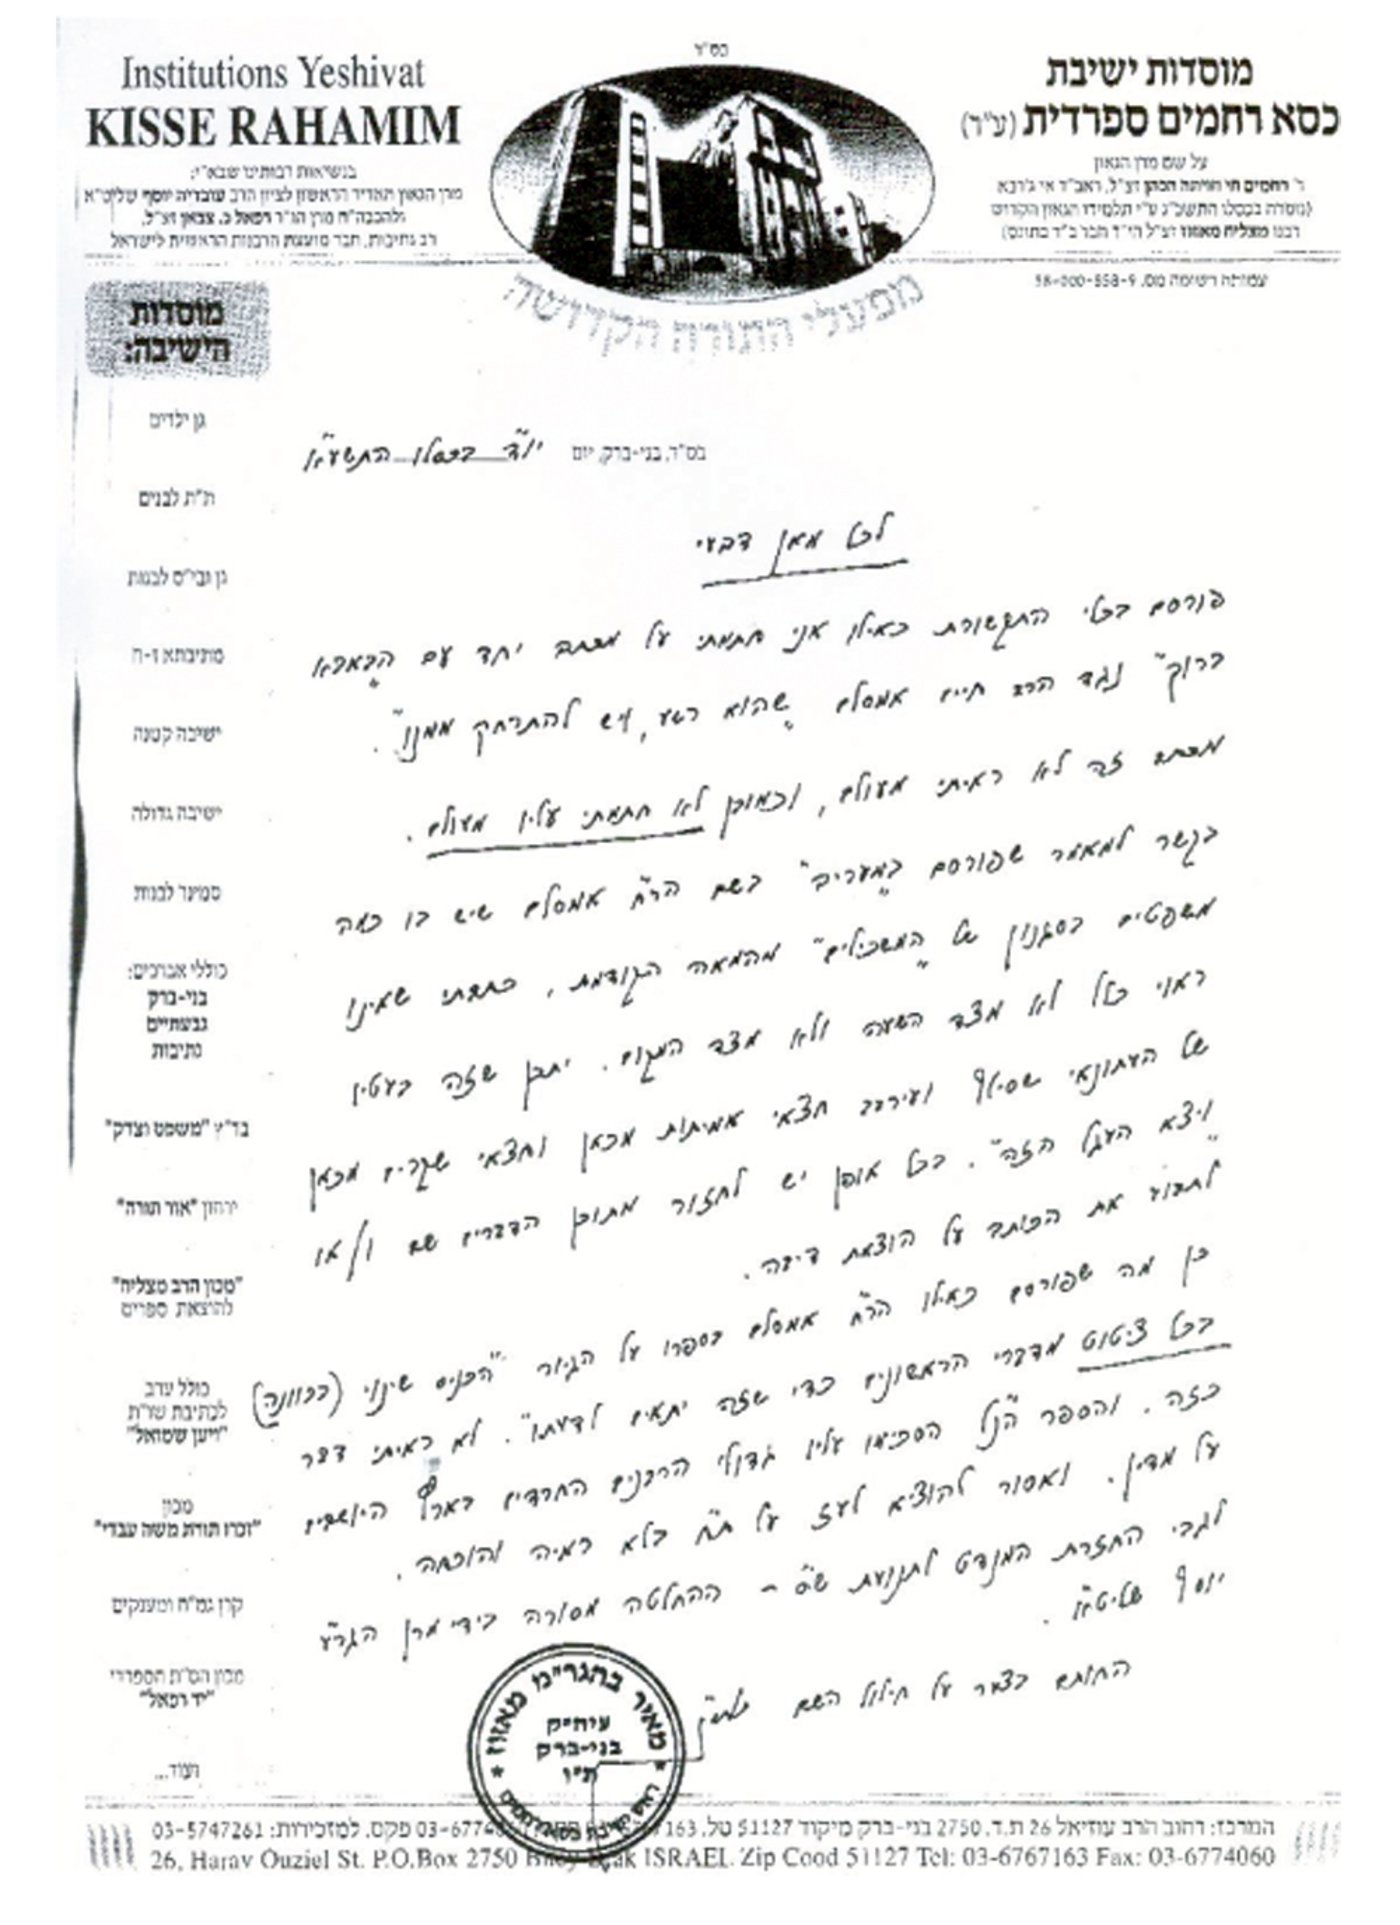 בס"ד
Institutions Yeshivat
KISSE RAHAMIM
בנשיאות רבותינו שבא"י:
מרן הגאון האדיר הראשון לציון הרב עובדיה יוסף שליט"א
ולהבבח"ח מרן הגר"ר רפאל כ. צבאן זצ"ל,
רב נתיבות, חבר מועצת הרבנות הראשית לישראל
מוסדות ישיבת
כסא רחמים ספרדית (ע"ר)
על שם מרן הגאון
ר' רחמים חי חויתה הכהן זצ"ל, ראב"ד אי ג'רבא
(נוסדה בכסלו התשכ"ג ע"י תלמידו הגאון הקדוש
רבנו מצליח מאזוז זצ"ל הי"ד חבר ב"ד בתונס)
עמותה רשומה מס. 58-000-558-9
מפעלי התורה הקדושה
מוסדות
הישיבה:
גן ילדים
ת"ת לבנים
גן ובי"ס לבנות
מתיבתא ז-ח
ישיבה קטנה
ישיבה גדולה
סמינר לבנות
כוללי אברכים:
בני-ברק
גבעתיים
נתיבות
בד"ץ "משפט וצדק"
ירחון "אור תורה"
"מכון הרב מצליח"
להוצאת ספרים
כולל ערב
לכתיבת שו"ת
"ויען שמואל"
מכון
"זכרו תורת משה עבדי"
קרן גמ"ח ומענקים
מכון הס"ת הספרדי
"יד רפאל"
ועוד...
בס"ד, בני-ברק, יום יו"ד בכסלו התשע"א
לכל מאן דבעי
פורסם בכלי התקשורת כאילו אני חתמתי על מכתב יחד עם "הבאבא
ברוך" נגד הרב חיים אמסלם "שהוא רשע, ויש להתרחק ממנו".
מכתב זה לא ראיתי מעולם, וכמובן לא חתמתי עליו מעולם.
בקשר למאמר שפורסם ב"מעריב" בשם הר"ח אמסלם שיש בו כמה
משפטים בסגנון של "המשכילים" מהמאה הקודמת, כתבתי שאינו
ראוי כלל לא מצד השעה ולא מצד המקום. יתכן שזה בעטיו
של העתונאי שסילף ועירבב חצאי אמיתות מכאן וחצאי שקרים מכאן
"ויצא העגל הזה". בכל אופן יש לחזור מתוכן הדברים שם ו/או
לתבוע את הכותב על הוצאת דיבה.
כן מה שפורסם כאילו הר"ח אמסלם בספרו על הגיור "הכניס שינוי (בכוונה)
בכל ציטוט מדברי הראשונים כדי שזה יתאים לדעתו". לא ראיתי דבר
כזה. והספר הנ"ל הסכימו עליו גדולי הרבנים החרדים בארץ היושבים
על מדין. ואסור להוציא לעז על ת"ח בלא ראיה והוכחה.
לגבי החזרת המנדט לתנועת ש"ס - ההחלטה מסורה בידי מרן הגר"ע
יוסף שליט"א.
החותם בצער על חילול השם
מאיר בהגר"מ מאזוז
עיה"ק
בני-ברק
ת"ו
המרכז: רחוב הרב עוזיאל 26 ת.ד. 2750 בני-ברק מיקוד 51127 טל. פקס. למזכירות: 03-5747261
26, Harav Ouziel St. P.O.Box 2750 Bney Brak ISRAEL. Zip Cood 51127 Tel: 03-6767163 Fax: 03-6774060